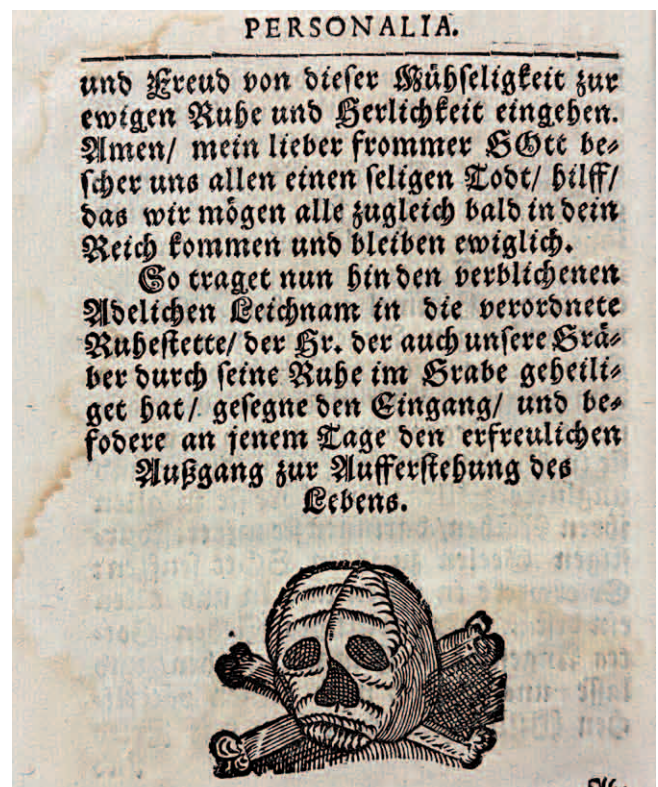 PERSONALIA.
und Freud von dieser Mühseligkeit zur
ewigen Ruhe und Herlichkeit eingehen.
Amen/ mein lieber frommer GOtt be-
scher uns allen einen seligen Todt/ hilff/
das wir mögen alle zugleich bald in dein
Reich kommen und bleiben ewiglich.
So traget nun hin den verblichenen
Adelichen Leichnam in die verordnete
Ruhestette/ der Hr. der auch unsere Grä-
ber durch seine Ruhe im Grabe geheili-
get hat/ gesegne den Eingang/ und be-
fodere an jenem Tage den erfreulichen
Außgang zur Aufferstehung des
Lebens.